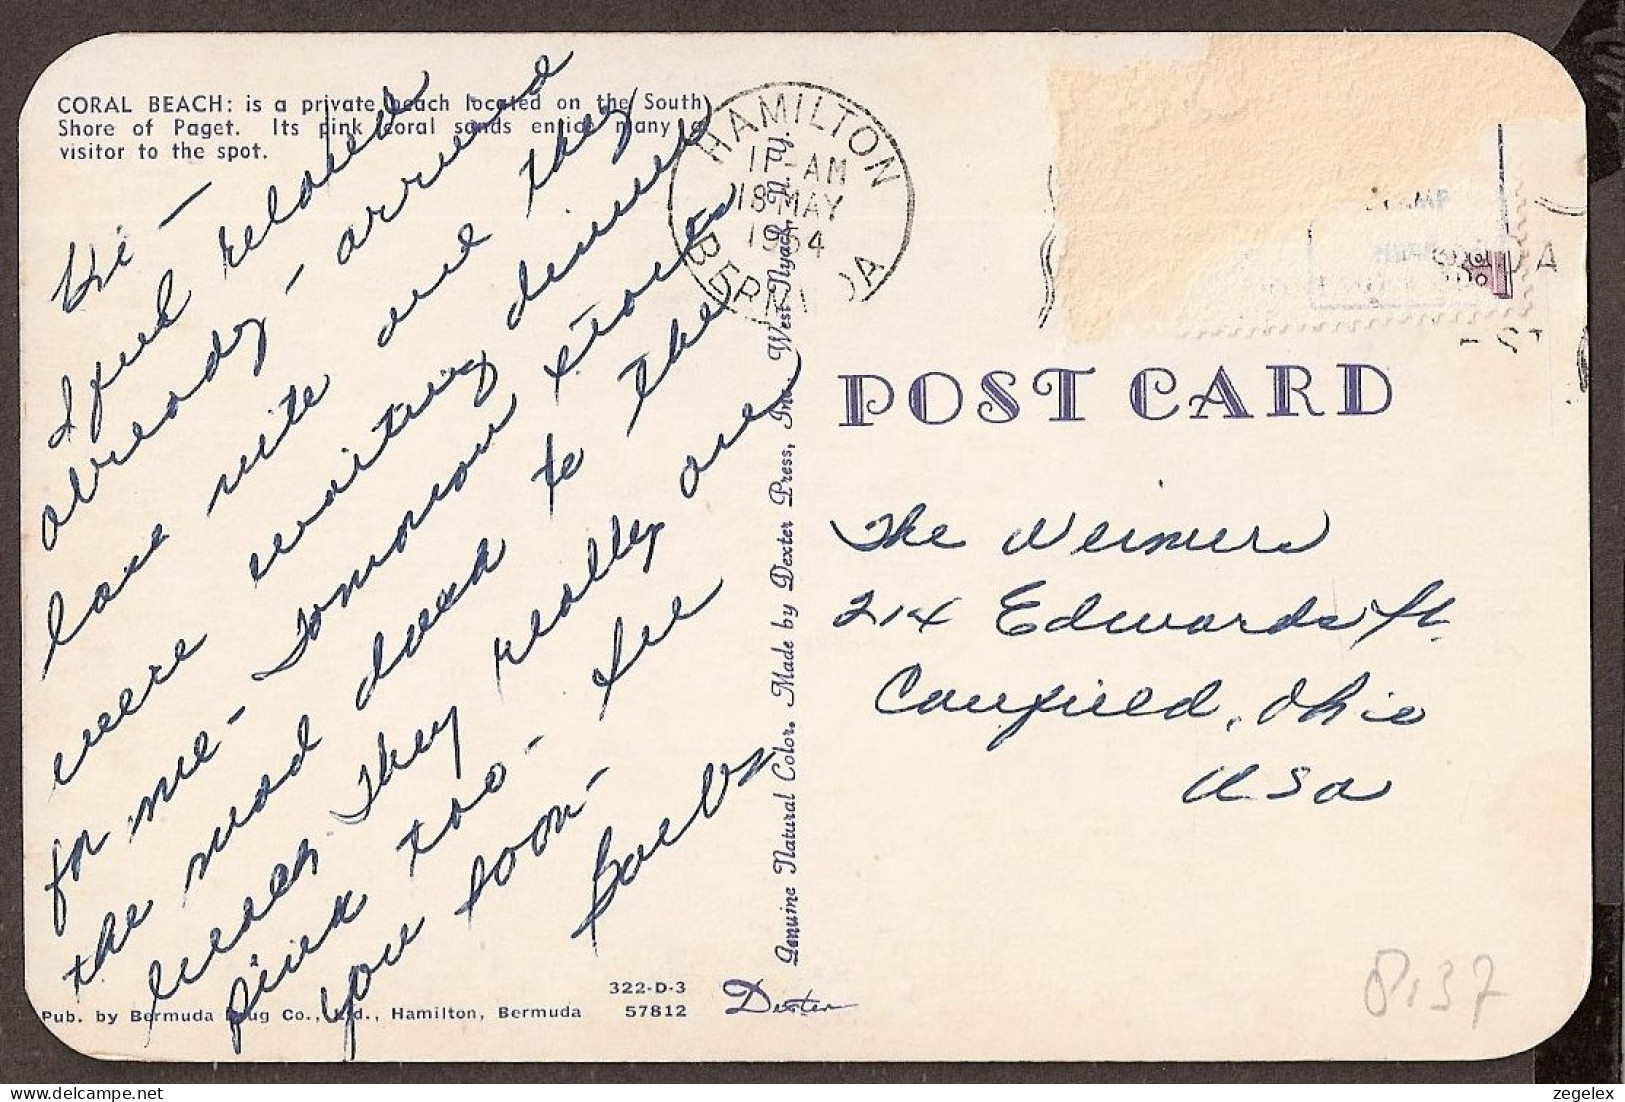 CORAL BEACH: is a private beach located on the South
Shore of Paget. Its pink coral sands entice many a
visitor to the spot.
Hi —
I feel relaxed
already - arrived
last nite and they
were waiting dinner
for me - Tomorrow
the road down to the
beach They really are
pink too - See
you soon -
Barb
Pub. by Bermuda Drug Co., Ltd., Hamilton, Bermuda
322-D-3
57812
Dexter
Genuine Natural Color. Made by Dexter Press, Inc. West Nyack, N. Y.
HAMILTON
11-AM
18 MAY
1964
BERMUDA
POST CARD
The Neimers
214 Edwards St.
Canfield, Ohio
USA
8,37
zegelex